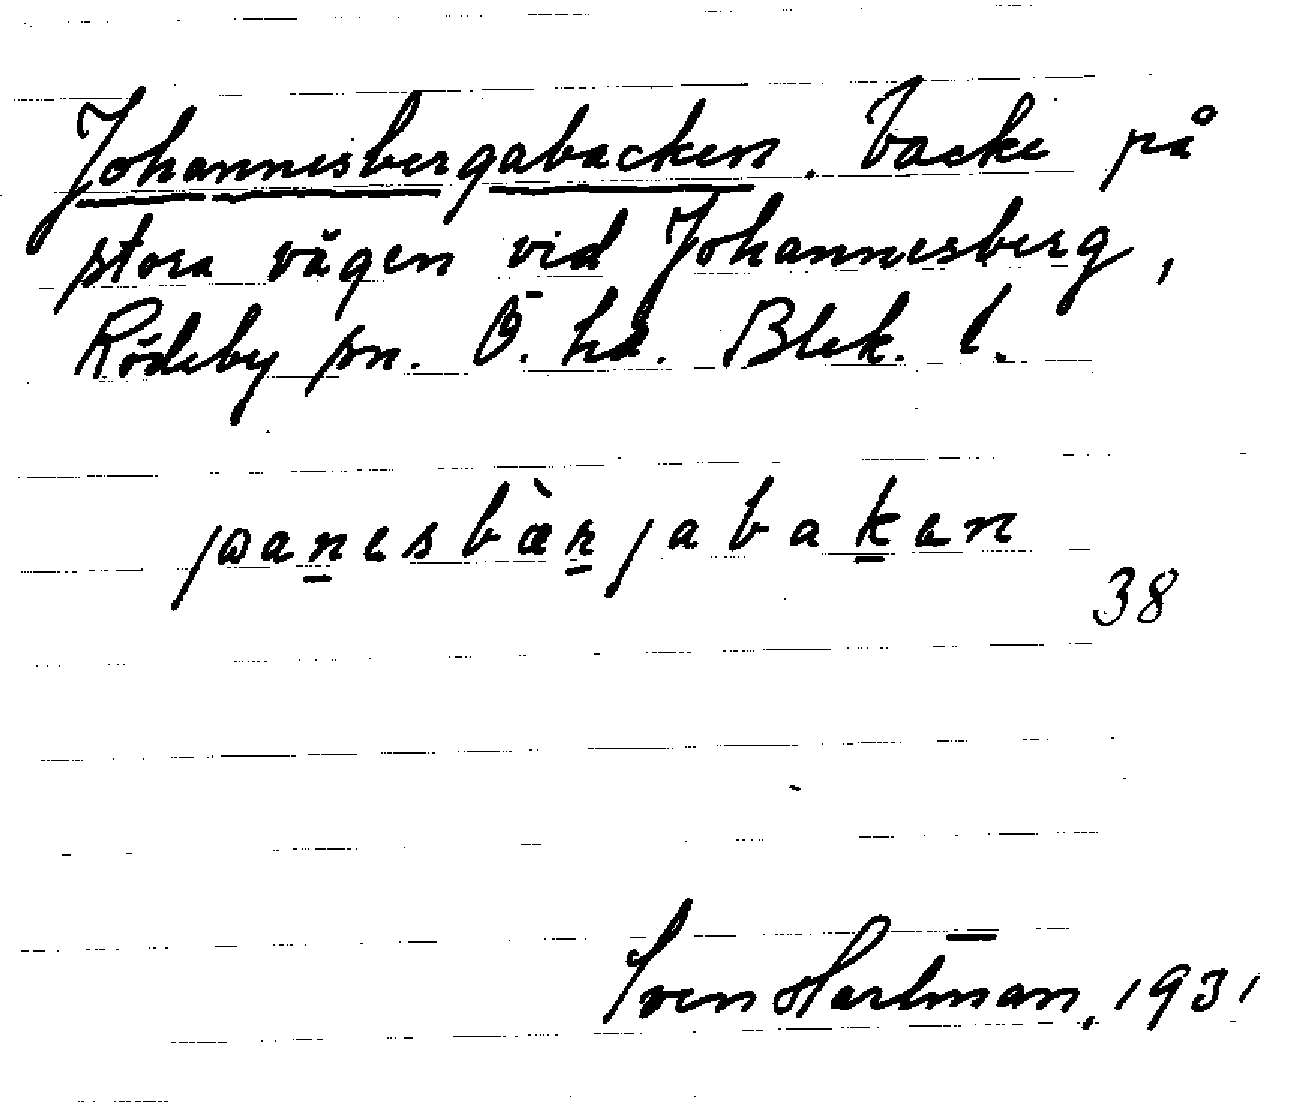 Johannesbergabacken. backe på
stora vägen vid Johannesberg,
Rödeby sn. Ö. hd. Blek. l.
jɷanesbæ̀rjabaken
38
Sven Hartman, 1931